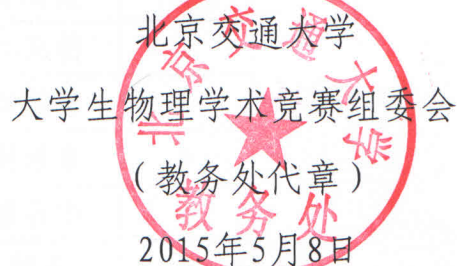 北京交通大学
大学生物理学术竞赛组委会
（教务处代章）
2015年5月8日
北京交通大学
教务处